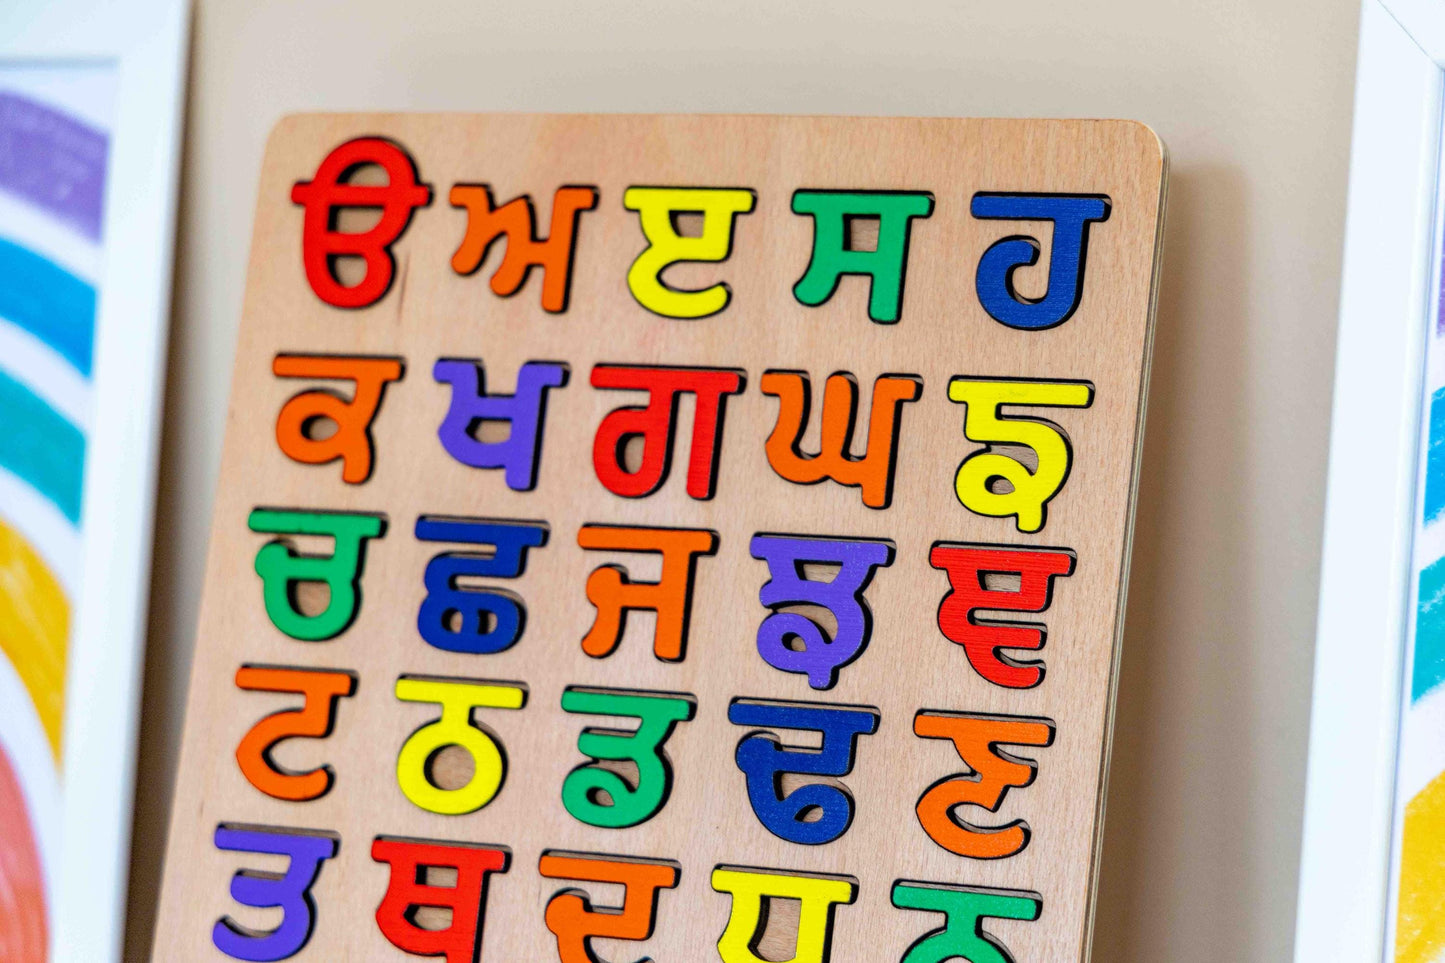 ੳ ਅ ੲ ਸ ਹ
ਕ ਖ ਗ ਘ ਙ
ਚ ਛ ਜ ਝ ਞ
ਟ ਠ ਡ ਢ ਣ
ਤ ਥ ਦ ਧ ਨ